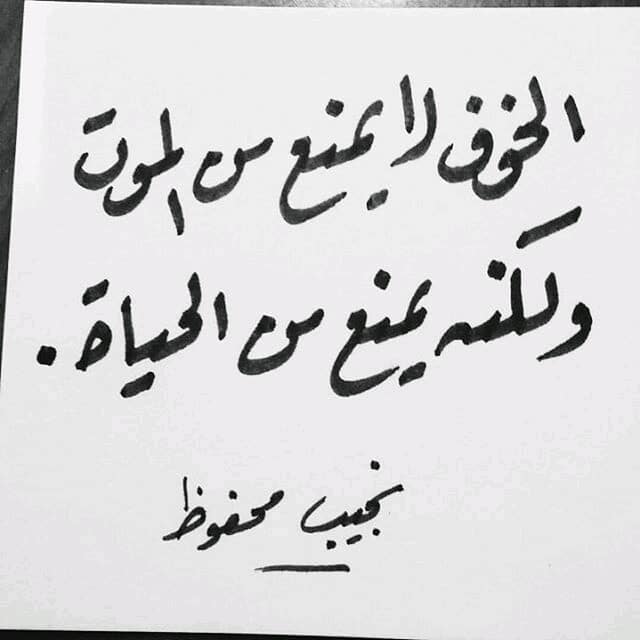 الخوف لا يمنع من الموت
ولكنه يمنع من الحياة.
نجيب محفوظ